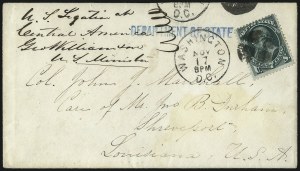 U.S. Legation at
Central America
Geo Williamson
U.S. Minister
DEPARTMENT OF STATE
8PM
D.C.
WASHINGTON
NOV
17
8PM
D.C.
Col. John J.
Care of Mr. Jno B.
Shreveport
Louisiana. U.S.A